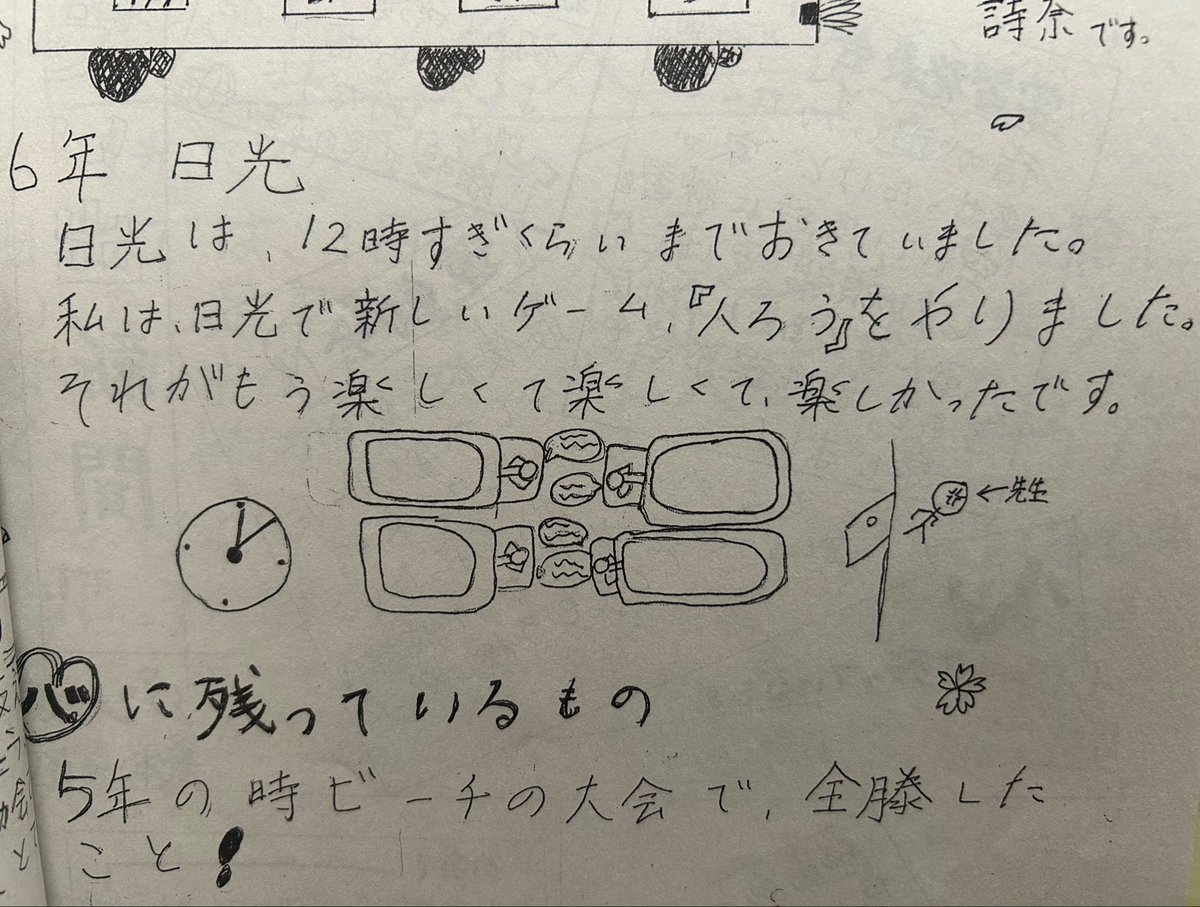 詩奈です。
6年 日光
日光は、12時すぎくらいまでおきていました。
私は、日光で新しいゲーム、『人ろう』をやりました。
それがもう楽しくて楽しくて、楽しかったです。
←先生
心に残っているもの
5年の時ビーチの大会で、全勝した
こと!